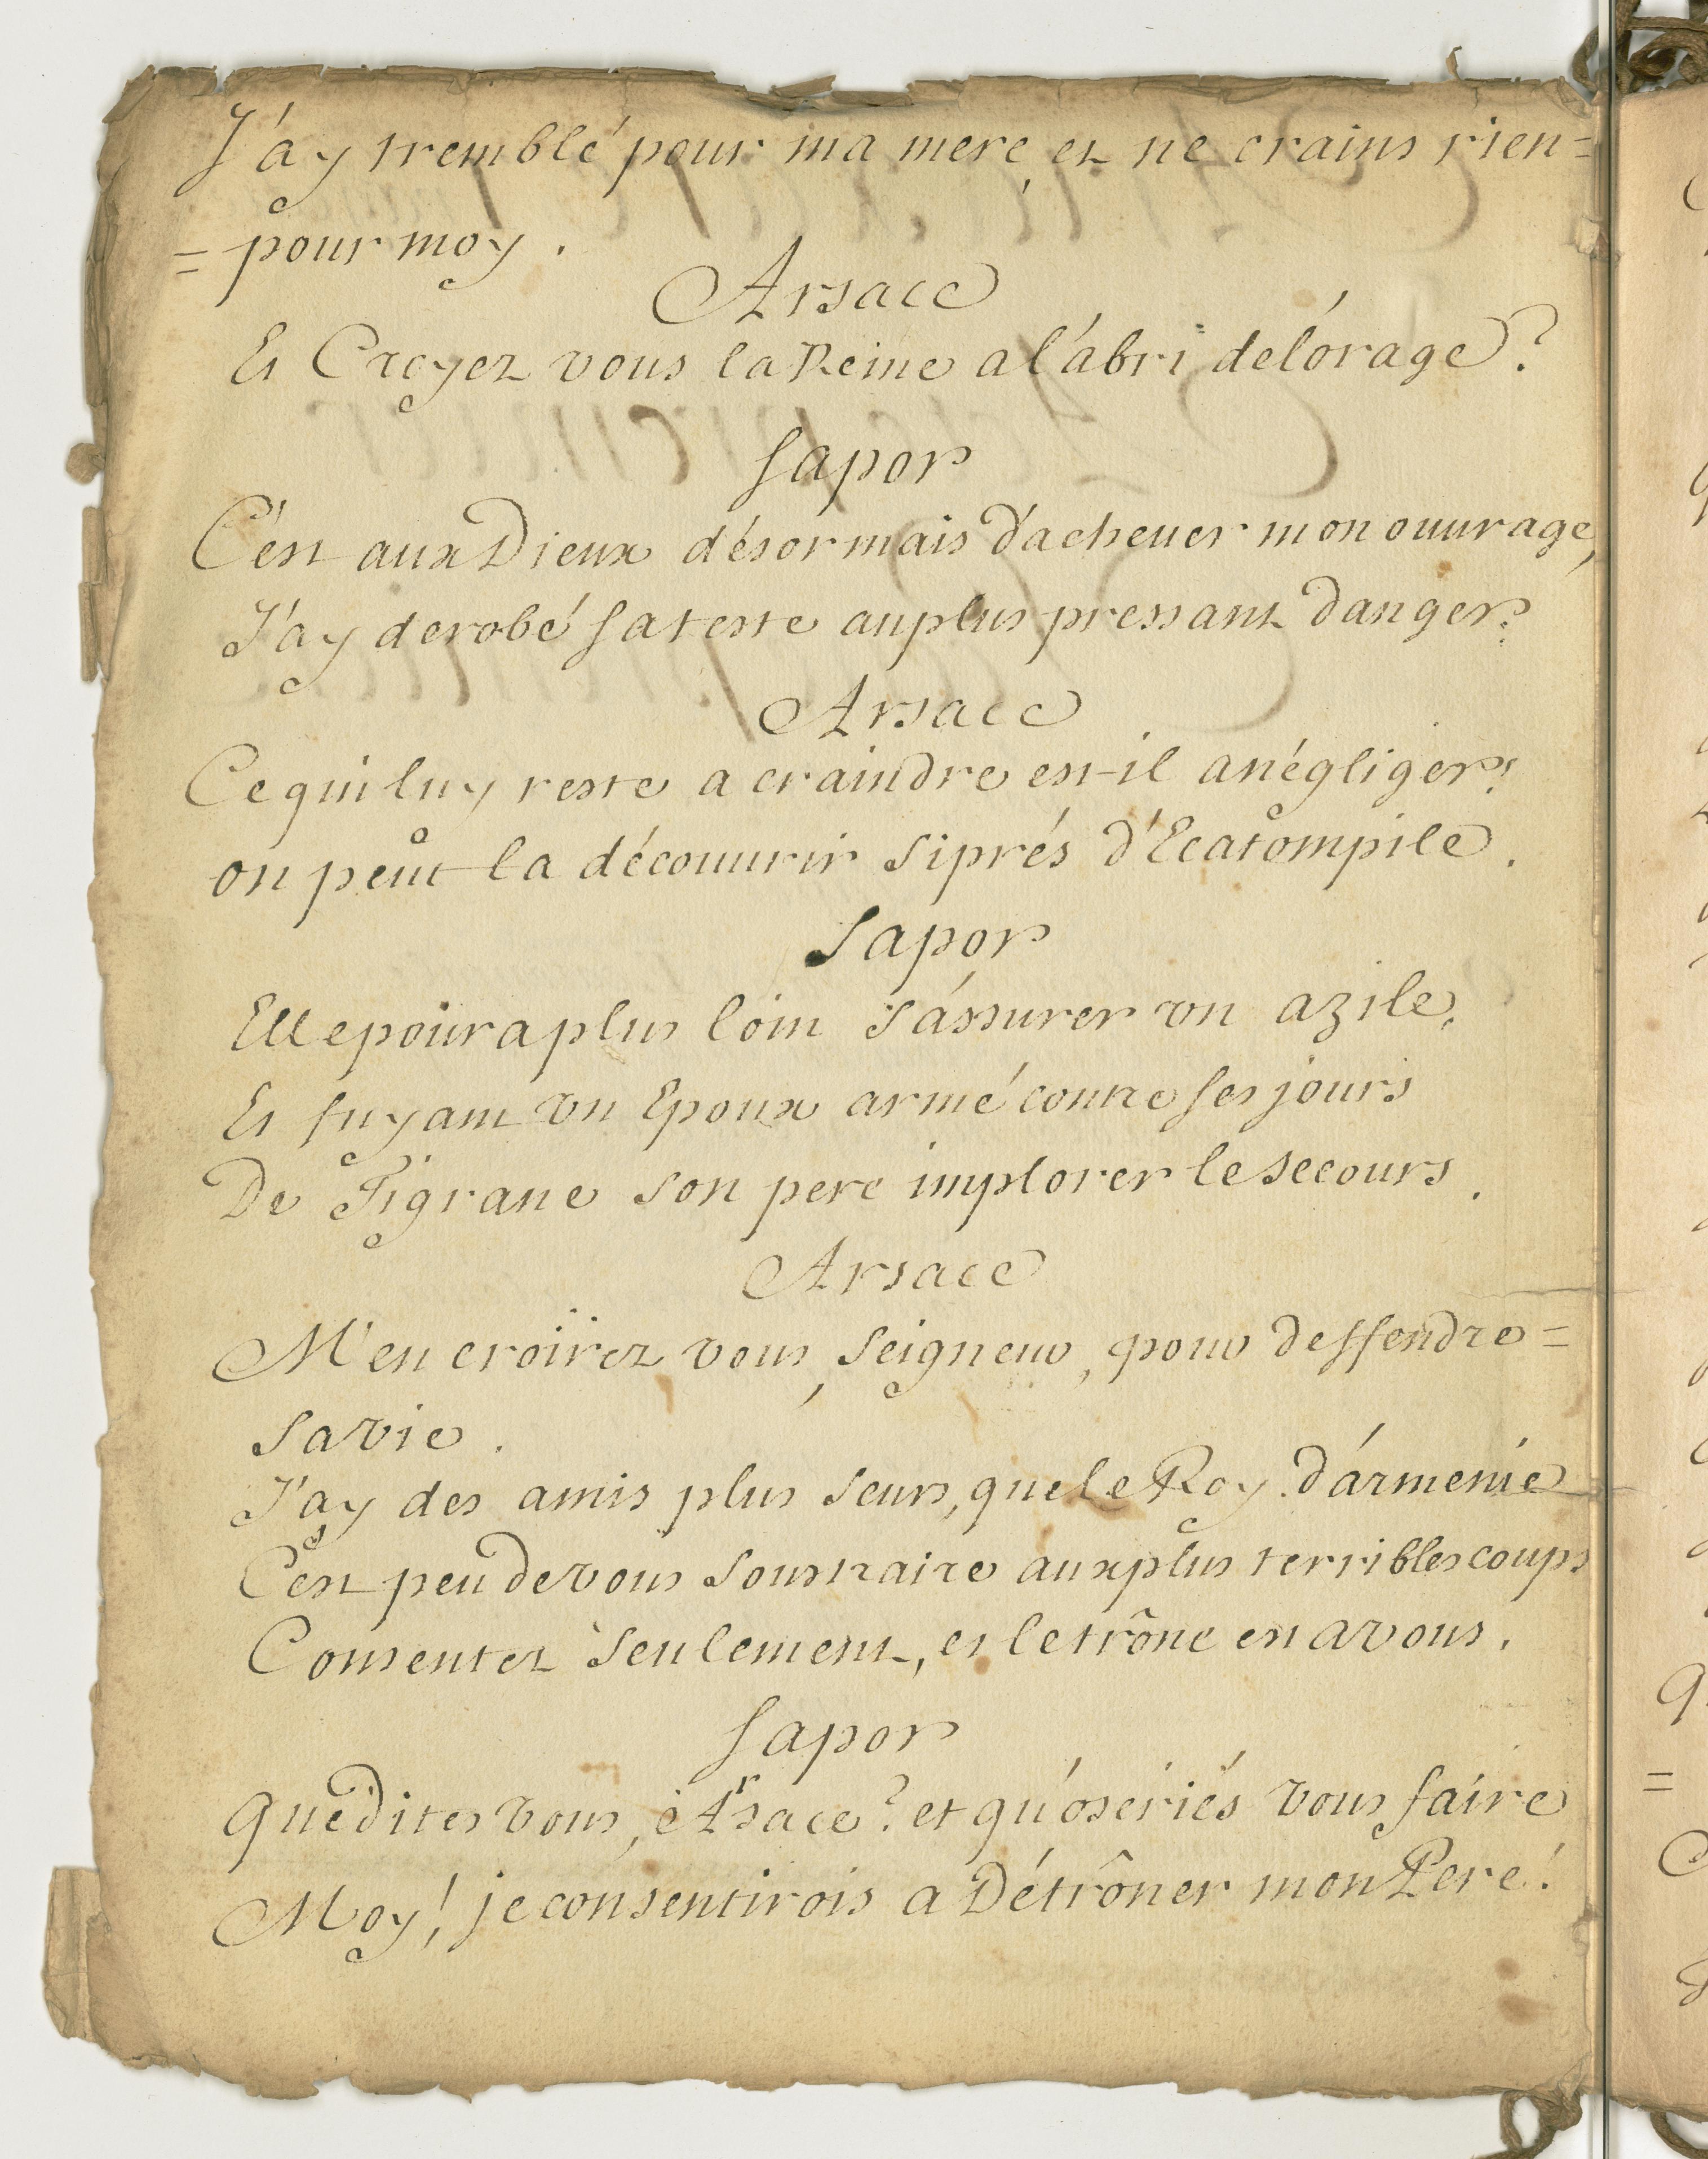 J'ay tremblé pour ma mere, et ne crains rien=
= pour moy.
Arsace
Et Croyez vous la Reine a l'abri de l'orage?
Sapor
C'est aux Dieux désormais d'acheuer mon ouurage,
J'ay derobé sa teste au plus pressant danger?
Arsace
Ce qui luy reste a craindre est-il a négliger?
on peut la découurir si prés d'Ecatompile.
Sapor
Elle poura plus loin s'assurer vn azile,
Et fuyant vn Epoux armé contre ses jours
De Tigrane son pere implorer le secours.
Arsace
M'en croirez vous, Seigneur, pour deffendre=
sa vie.
J'ay des amis plus seurs, que le Roy d'armenie
C'est peu de vous soustraire aux plus terribles coups
Consentez seulement, et le trône est a vous.
Sapor
que dites vous, Arsace? et qu'oseriés vous faire
Moy! je consentirois a Détrôner mon Pere!